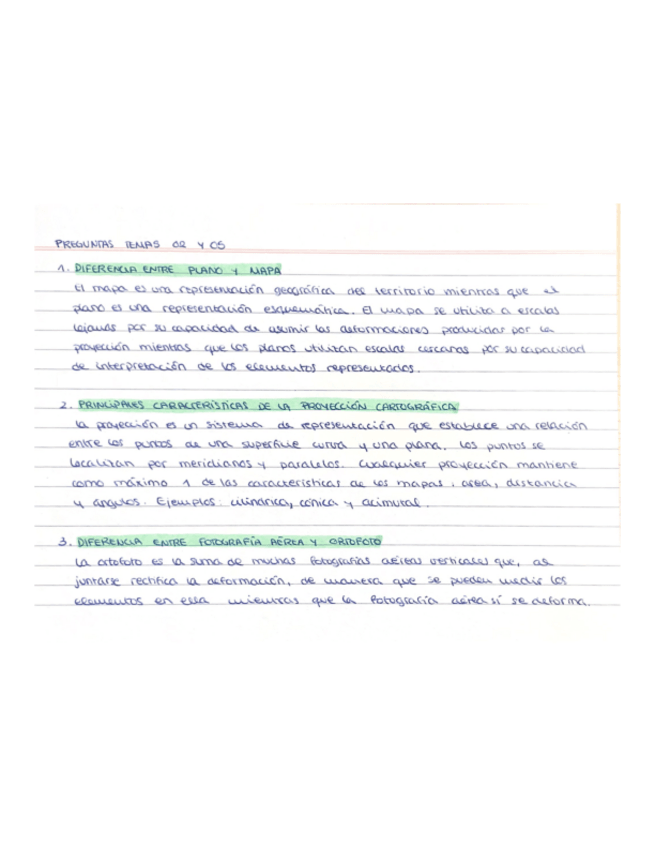 PREGUNTAS TEMAS 02 Y 05
1. DIFERENCIA ENTRE PLANO Y MAPA
El mapa es una representación geográfica del territorio mientras que el
plano es una representación esquemática. El mapa se utiliza a escalas
lejanas por su capacidad de asumir las deformaciones producidas por la
proyección mientras que los planos utilizan escalas cercanas por su capacidad
de interpretación de los elementos representados.
2. PRINCIPALES CARACTERÍSTICAS DE LA PROYECCIÓN CARTOGRÁFICA
La proyección es un sistema de representación que establece una relación
entre los puntos de una superficie curva y una plana. Los puntos se
localizan por meridianos y paralelos. Cualquier proyección mantiene
como máximo 1 de las características de los mapas: area, distancia
y angulos. Ejemplos: cilíndrica, cónica y acimutal.
3. DIFERENCIA ENTRE FOTOGRAFÍA AÉREA Y ORTOFOTO
La ortofoto es la suma de muchas fotografías aéreas verticales que, al
juntarse rectifica la deformación, de manera que se pueden medir los
elementos en ella mientras que la fotografía aérea sí se deforma.